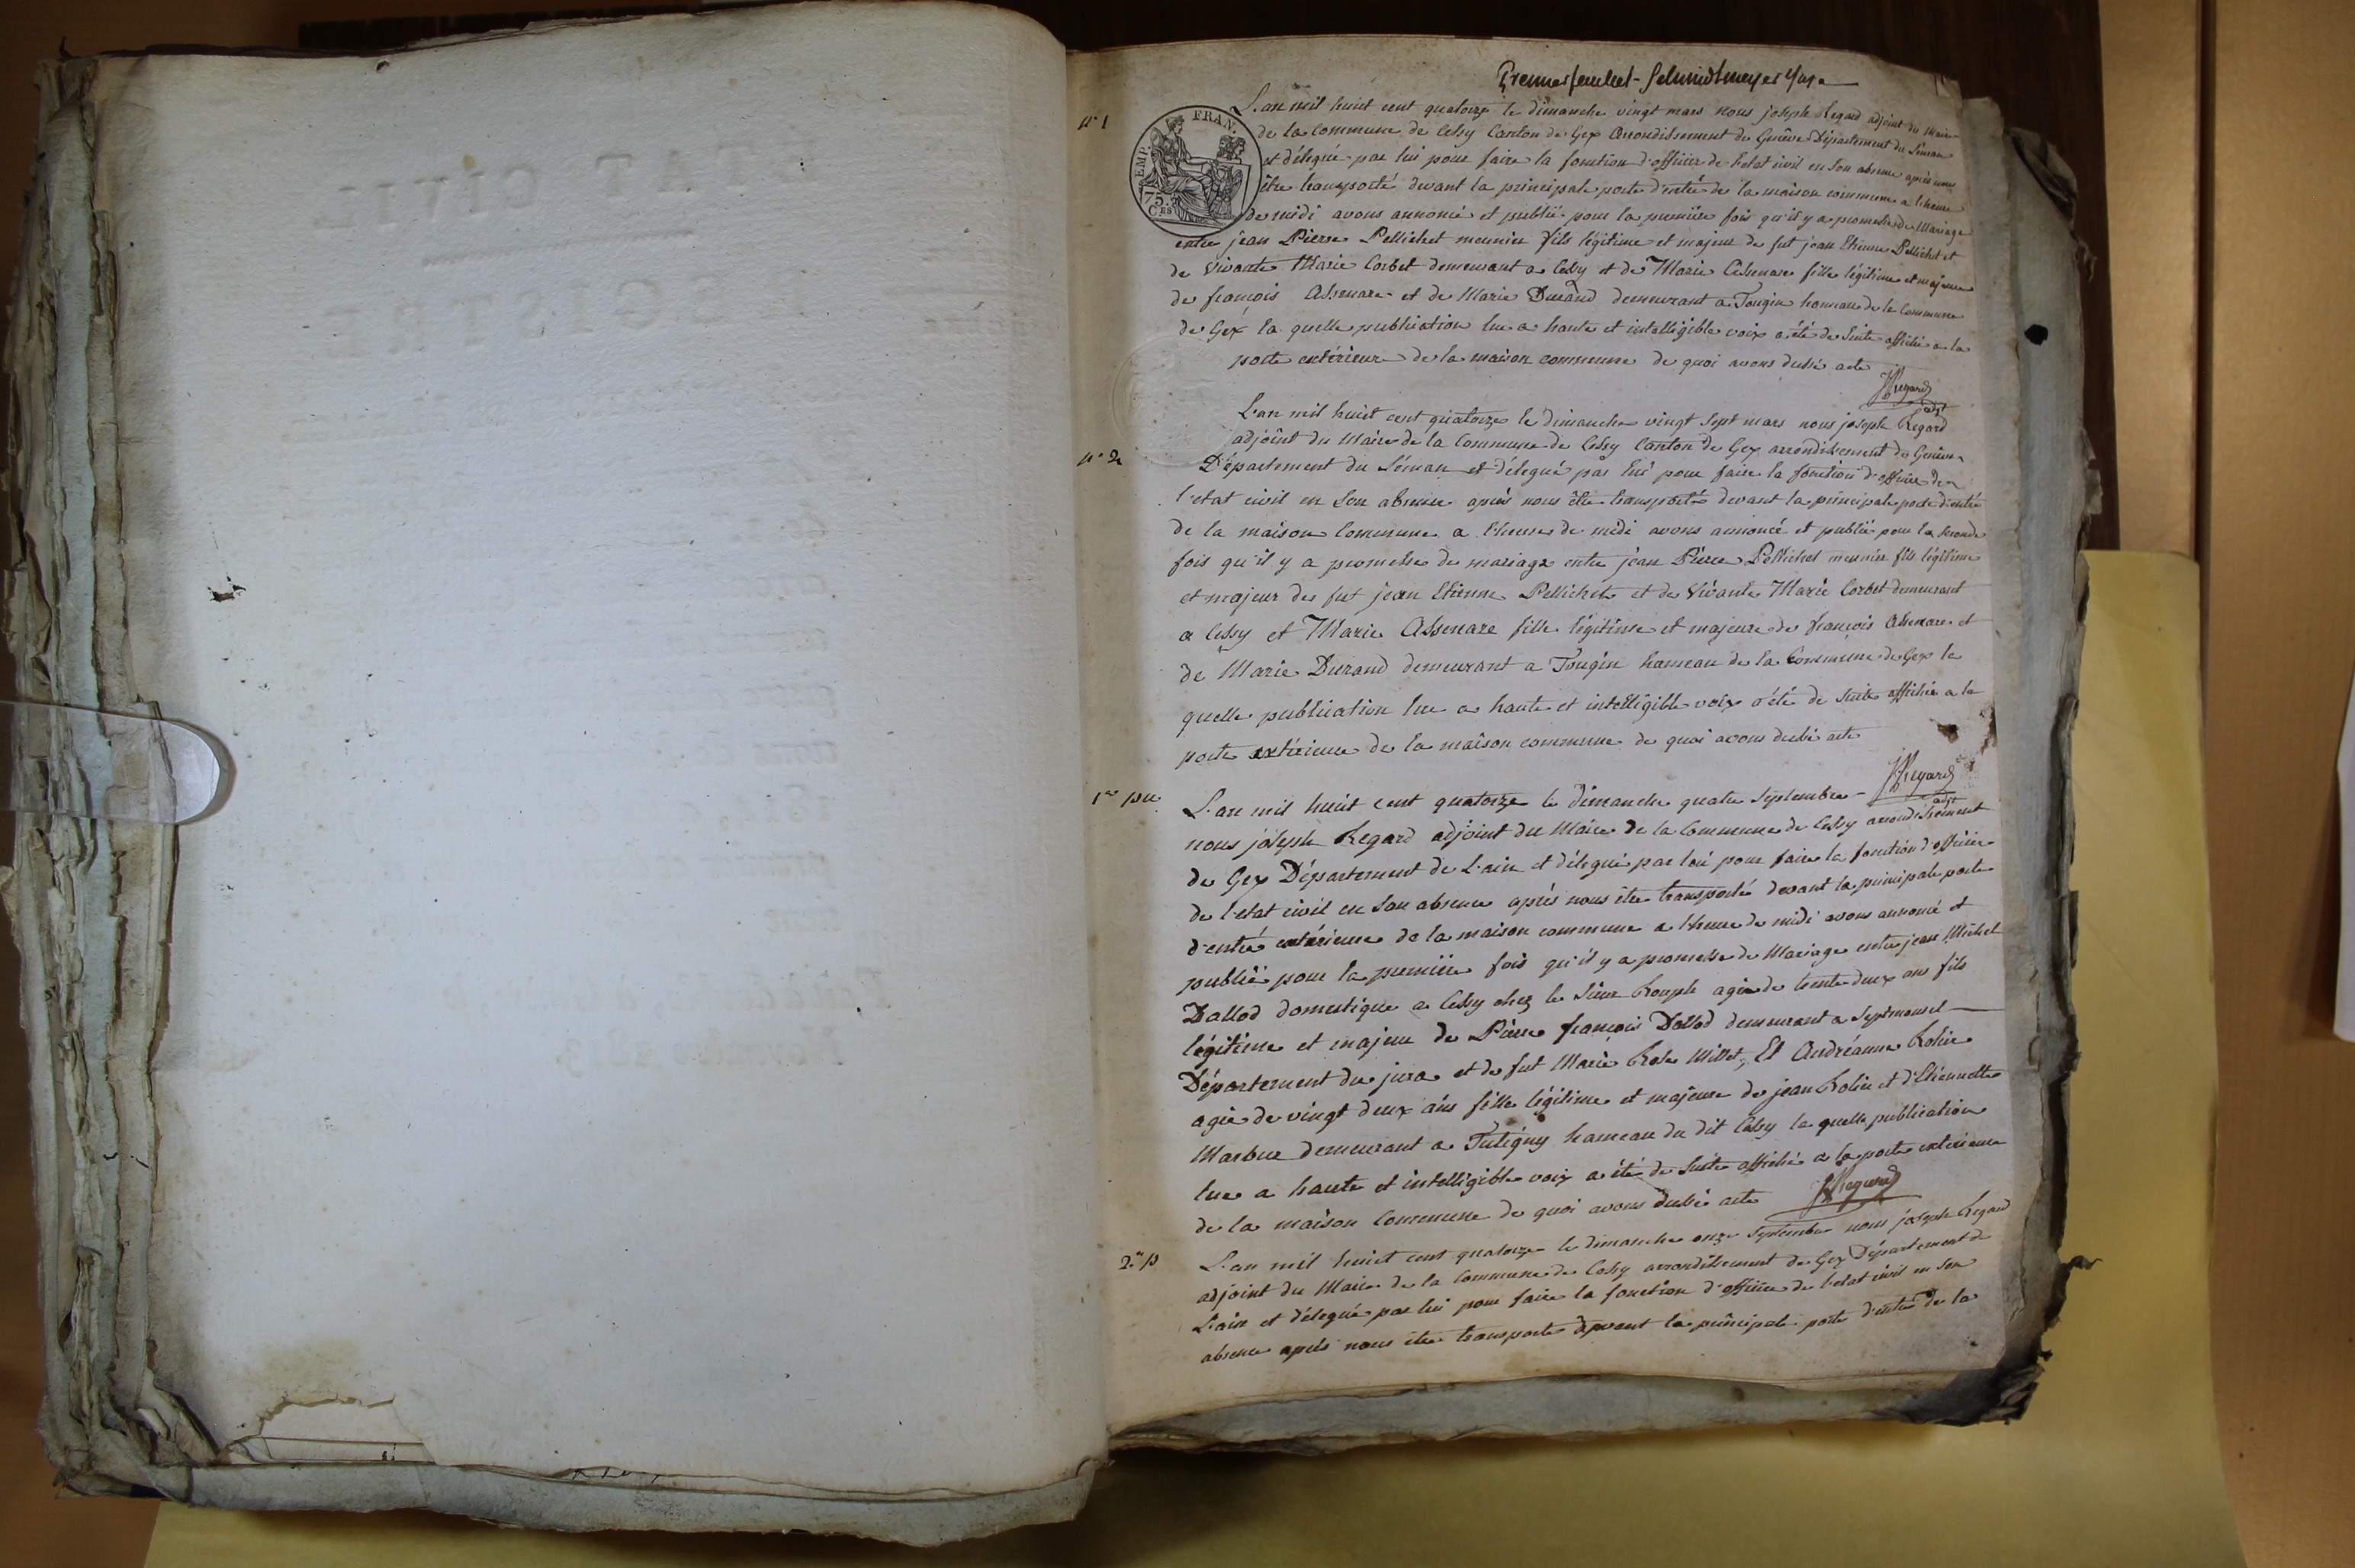 Premier feuillet - Schmidtmeyer Juge
n° 1
L'an mil huit cent quatorze le dimanche vingt mars nous joseph Regard adjoint du Maire
de la Commune de Cessy Canton de Gex arrondissement de Genève Département du Léman
et délegué par lui pour faire la fonction d'officier de l'etat civil en son absence après nous
EMP. FRAN.
75. Ces
être transporté devant la principale porte d'entré de la maison commune a l'heure
de midi avons annoncé et publié pour la premiére fois qu'il y a promesse de Mariage
entre jean Pierre Pellichet meunier fils légitime et majeur de fut jean Etienne Pellichet et
de Vivante Marie Corbet demeurant a Cessy et de Marie Assenare fille légitime et majeure
de françois Assenare et de Marie Durand demeurant a Tougin hameau de la Commune
de Gex la quelle publication lue a haute et intelligible voix a été de suite affiché a la
porte extérieur de la maison commune de quoi avons dressé acte
JRegard
adjt
n° 2
L'an mil huit cent quatorze le dimanche vingt sept mars nous joseph Regard
adjoint du Maire de la Commune de Cessy Canton de Gex arrondissement de Genève
Département du Léman et délegué par lui pour faire la fonction d'officier de
l'etat civil en son absence après nous être transporté devant la principale porte d'entré
de la maison Commune a l'heure de midi avons annoncé et publié pour la seconde
fois qu'il y a promesse de mariage entre jean Pierre Pellichet meunier fils légitime
et majeur de fut jean Etienne Pellichet et de Vivante Marie Corbet demeurant
a Cessy et Marie Assenare fille légitime et majeure de françois Assenare et
de Marie Durand demeurant a Tougin hameau de la Commune de Gex la
quelle publication lue a haute et intelligible voix a été de suite affiché a la
porte extérieure de la maison commune de quoi avons dressé acte
JRegard
adjt
1re pu
L'an mil huit cent quatorze le dimanche quatre septembre
nous joseph Regard adjoint du Maire de la Commune de Cessy arrondissement
de Gex Département de L'ain et délegué par lui pour faire la fonction d'officier
de l'etat civil en son absence après nous être transporté devant la principale porte
d'entré extérieure de la maison commune a l'heure de midi avons annoncé et
publié pour la premiére fois qu'il y a promesse de Mariage entre jean Michel
Dallod domestique a Cessy chez le Sieur Rouph agé de trente deux ans fils
légitime et majeur de Pierre françois Dallod demeurant a Septmoncel
Département du jura et de fut Marie Rose Millet, Et Andréanne Rolin
agée de vingt deux ans fille légitime et majeure de jean Rolin et d'Etiennette
Marbur demeurant a Tutégny hameau du dit Cessy la quelle publication
lue a haute et intelligible voix a été de suite affiché a la porte extérieure
de la maison Commune de quoi avons dressé acte
JRegard
2e p
L'an mil huit cent quatorze le dimanche onze septembre nous joseph Regard
adjoint du Maire de la Commune de Cessy arrondissement de Gex Département de
L'ain et délegué par lui pour faire la fonction d'officier de l'etat civil en son
absence après nous être transporté devant la principale porte d'entré de la